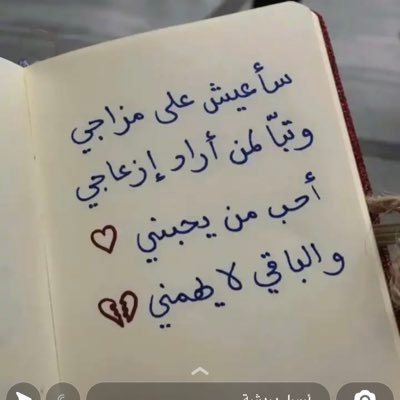 سأعيش على مزاجي
وتبّاً لمن أراد إزعاجي
أحب من يحبني ♡
والباقي لا يهمني 💔